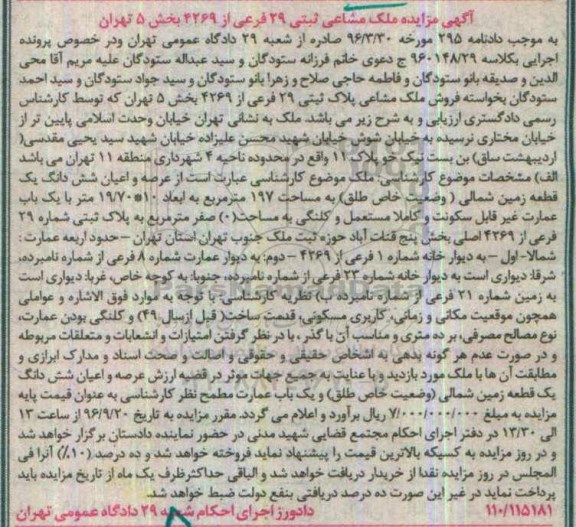 آگهی مزایده ملک مشاعی ثبتی ۲۹ فرعی از ۴۲۶۹ بخش ۵ تهران
به موجب دادنامه ۲۹۵ مورخه ۹۶/۳/۳۰ صادره از شعبه ۲۹ دادگاه عمومی تهران ودر خصوص پرونده
اجرایی بکلاسه ۹۶۰۱۴۸/۲۹ ج دعوی خانم فرزانه ستودگان و سید عبداله ستودگان علیه مریم آقا محی
الدین و صدیقه بانو ستودگان و فاطمه حاجی صلاح و زهرا بانو ستودگان و سید جواد ستودگان و سید احمد
ستودگان بخواسته فروش ملک مشاعی پلاک ثبتی ۲۹ فرعی از ۴۲۶۹ بخش ۵ تهران که توسط کارشناس
رسمی دادگستری ارزیابی و به شرح زیر می باشد. ملک به نشانی تهران خیابان وحدت اسلامی پایین تر از
خیابان مختاری نرسیده به خیابان شوش خیابان شهید محسن علیزاده خیابان شهید سید یحیی مقدسی(
اردیبهشت ساق) بن بست نیک خو پلاک ۱۱ واقع در محدوده ناحیه ۴ شهرداری منطقه ۱۱ تهران می باشد
الف) مشخصات موضوع کارشناسی: ملک موضوع کارشناسی عبارت است از عرصه و اعیان شش دانگ یک
قطعه زمین شمالی ( وضعیت خاص طلق) به مساحت ۱۹۷ مترمربع به ابعاد ۱۰*۱۹/۷۰ متر با یک باب
عمارت غیر قابل سکونت و کاملا مستعمل و کلنگی به مساحت(۰) صفر مترمربع به پلاک ثبتی شماره ۲۹
فرعی از ۴۲۶۹ اصلی بخش پنج قنات آباد حوزه ثبت ملک جنوب تهران استان تهران – حدود اربعه عمارت :
شمالا- اول – به دیوار خانه شماره ۱ فرعی از ۴۲۶۹ – دوم: به دیوار عمارت شماره ۸ فرعی از شماره نامبرده،
شرقا: دیواری است به دیوار خانه شماره ۲۳ فرعی از شماره نامبرده، جنوبا: به کوچه خاص، غربا: دیواری است
به زمین شماره ۲۱ فرعی از شماره نامبرده ب) نظریه کارشناسی: با توجه به موارد فوق الاشاره و عواملی
همچون موقعیت مکانی و زمانی، کاربری مسکونی، قدمت ساخت( قبل ازسال ۴۹) و کلنگی بودن عمارت،
نوع مصالح مصرفی، بر ده متری و مناسب آن با گذر ، با در نظر گرفتن امتیازات و انشعابات و متعلقات مربوطه
و در صورت عدم هر گونه بدهی به اشخاص حقیقی و حقوقی و اصالت و صحت اسناد و مدارک ابرازی و
مطابقت آن ها با ملک مورد بازدید و با عنایت به جمیع جهات موثر در قضیه ارزش عرصه و اعیان شش دانگ
یک قطعه زمین شمالی (وضعیت خاص طلق) و یک باب عمارت مطمح نظر کارشناسی به عنوان قیمت پایه
مزایده به مبلغ ۷/۰۰۰/۰۰۰/۰۰۰ ریال برآورد و اعلام می گردد. مقرر مزایده به تاریخ ۹۶/۹/۲۰ از ساعت ۱۳
الی ۱۳/۳۰ در دفتر اجرای احکام مجتمع قضایی شهید مدنی در حضور نماینده دادستان برگزار خواهد شد
و در روز مزایده به کسیکه بالاترین قیمت را پیشنهاد نماید فروخته خواهد شد و ده درصد (۱۰٪) آنرا فی
المجلس در روز مزایده نقدا از خریدار دریافت خواهد شد و الباقی حداکثرظرف یک ماه از تاریخ مزایده باید
پرداخت نماید در غیر این صورت ده درصد دریافتی بنفع دولت ضبط خواهد شد.
۱۱۰/۱۱۵۱۸۱ دادورز اجرای احکام شعبه ۲۹ دادگاه عمومی تهران